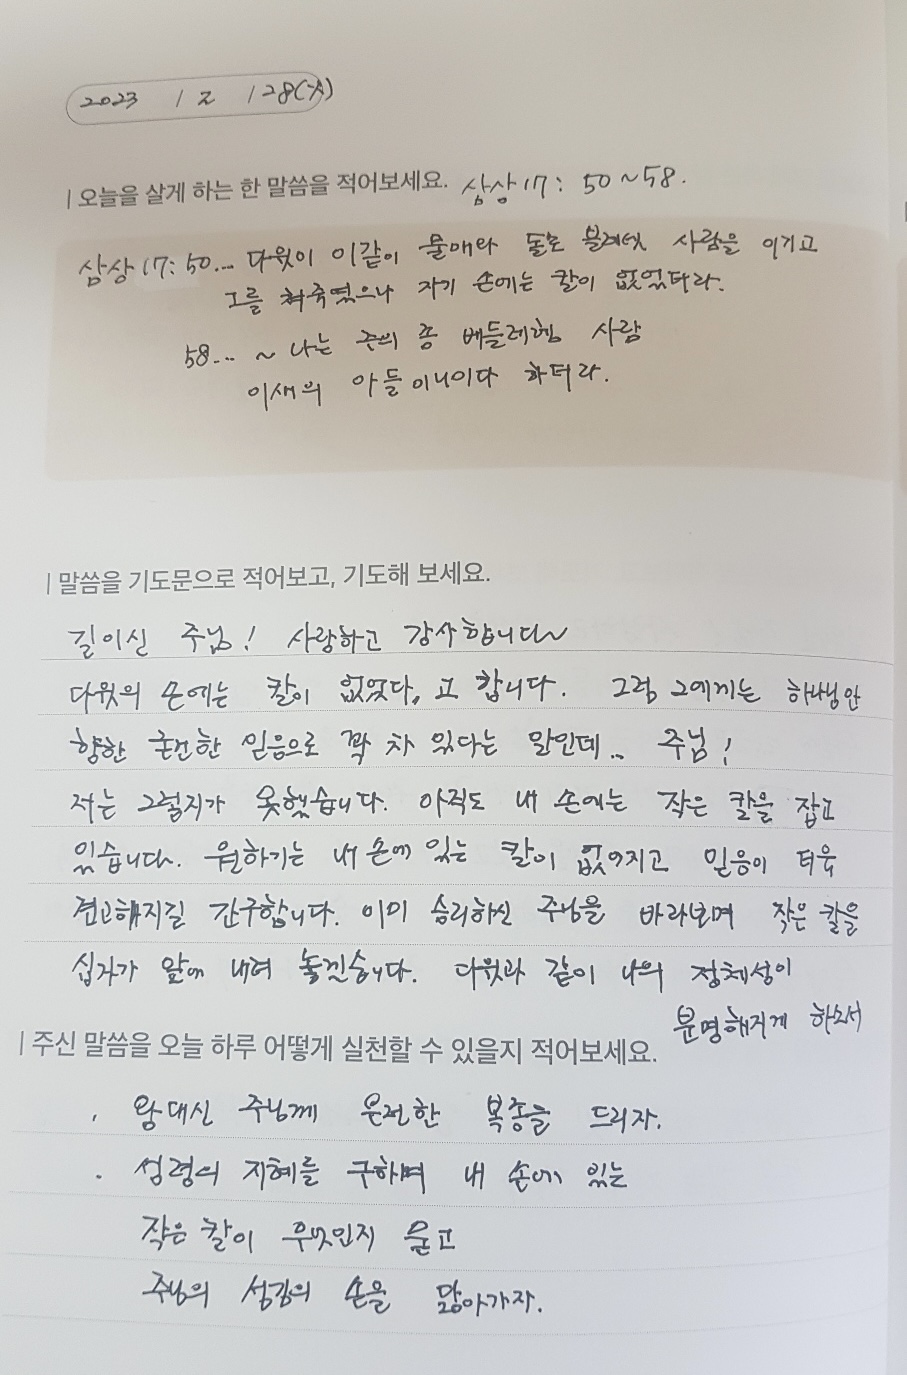 2023 / 2 / 28(火)
| 오늘을 살게 하는 한 말씀을 적어보세요. 삼상 17: 50~58.
삼상 17: 50... 다윗이 이같이 물매와 돌로 블레셋 사람을 이기고
그를 쳐죽였으나 자기 손에는 칼이 없었더라.
58... ~ 나는 주의 종 베들레헴 사람
이새의 아들이니이다 하더라.
| 말씀을 기도문으로 적어보고, 기도해 보세요.
길이신 주님! 사랑하고 감사합니다~
다윗의 손에는 칼이 없었다, 고 합니다. 그럼 그에게는 하나님만
향한 굳건한 믿음으로 꽉 차 있다는 말인데.. 주님!
저는 그렇지가 못했습니다. 아직도 내 손에는 작은 칼을 잡고
있습니다. 원하기는 내 손에 있는 칼이 없어지고 믿음이 더욱
견고해지길 간구합니다. 이미 승리하신 주님을 바라보며 작은 칼을
십자가 앞에 내려 놓겠습니다. 다윗과 같이 나의 정체성이
분명해지게 하소서
| 주신 말씀을 오늘 하루 어떻게 실천할 수 있을지 적어보세요.
. 왕 대신 주님께 온전한 복종을 드리자.
. 성령의 지혜를 구하며 내 손에 있는
작은 칼이 무엇인지 묻고
주님의 섬김의 손을 닮아가자.